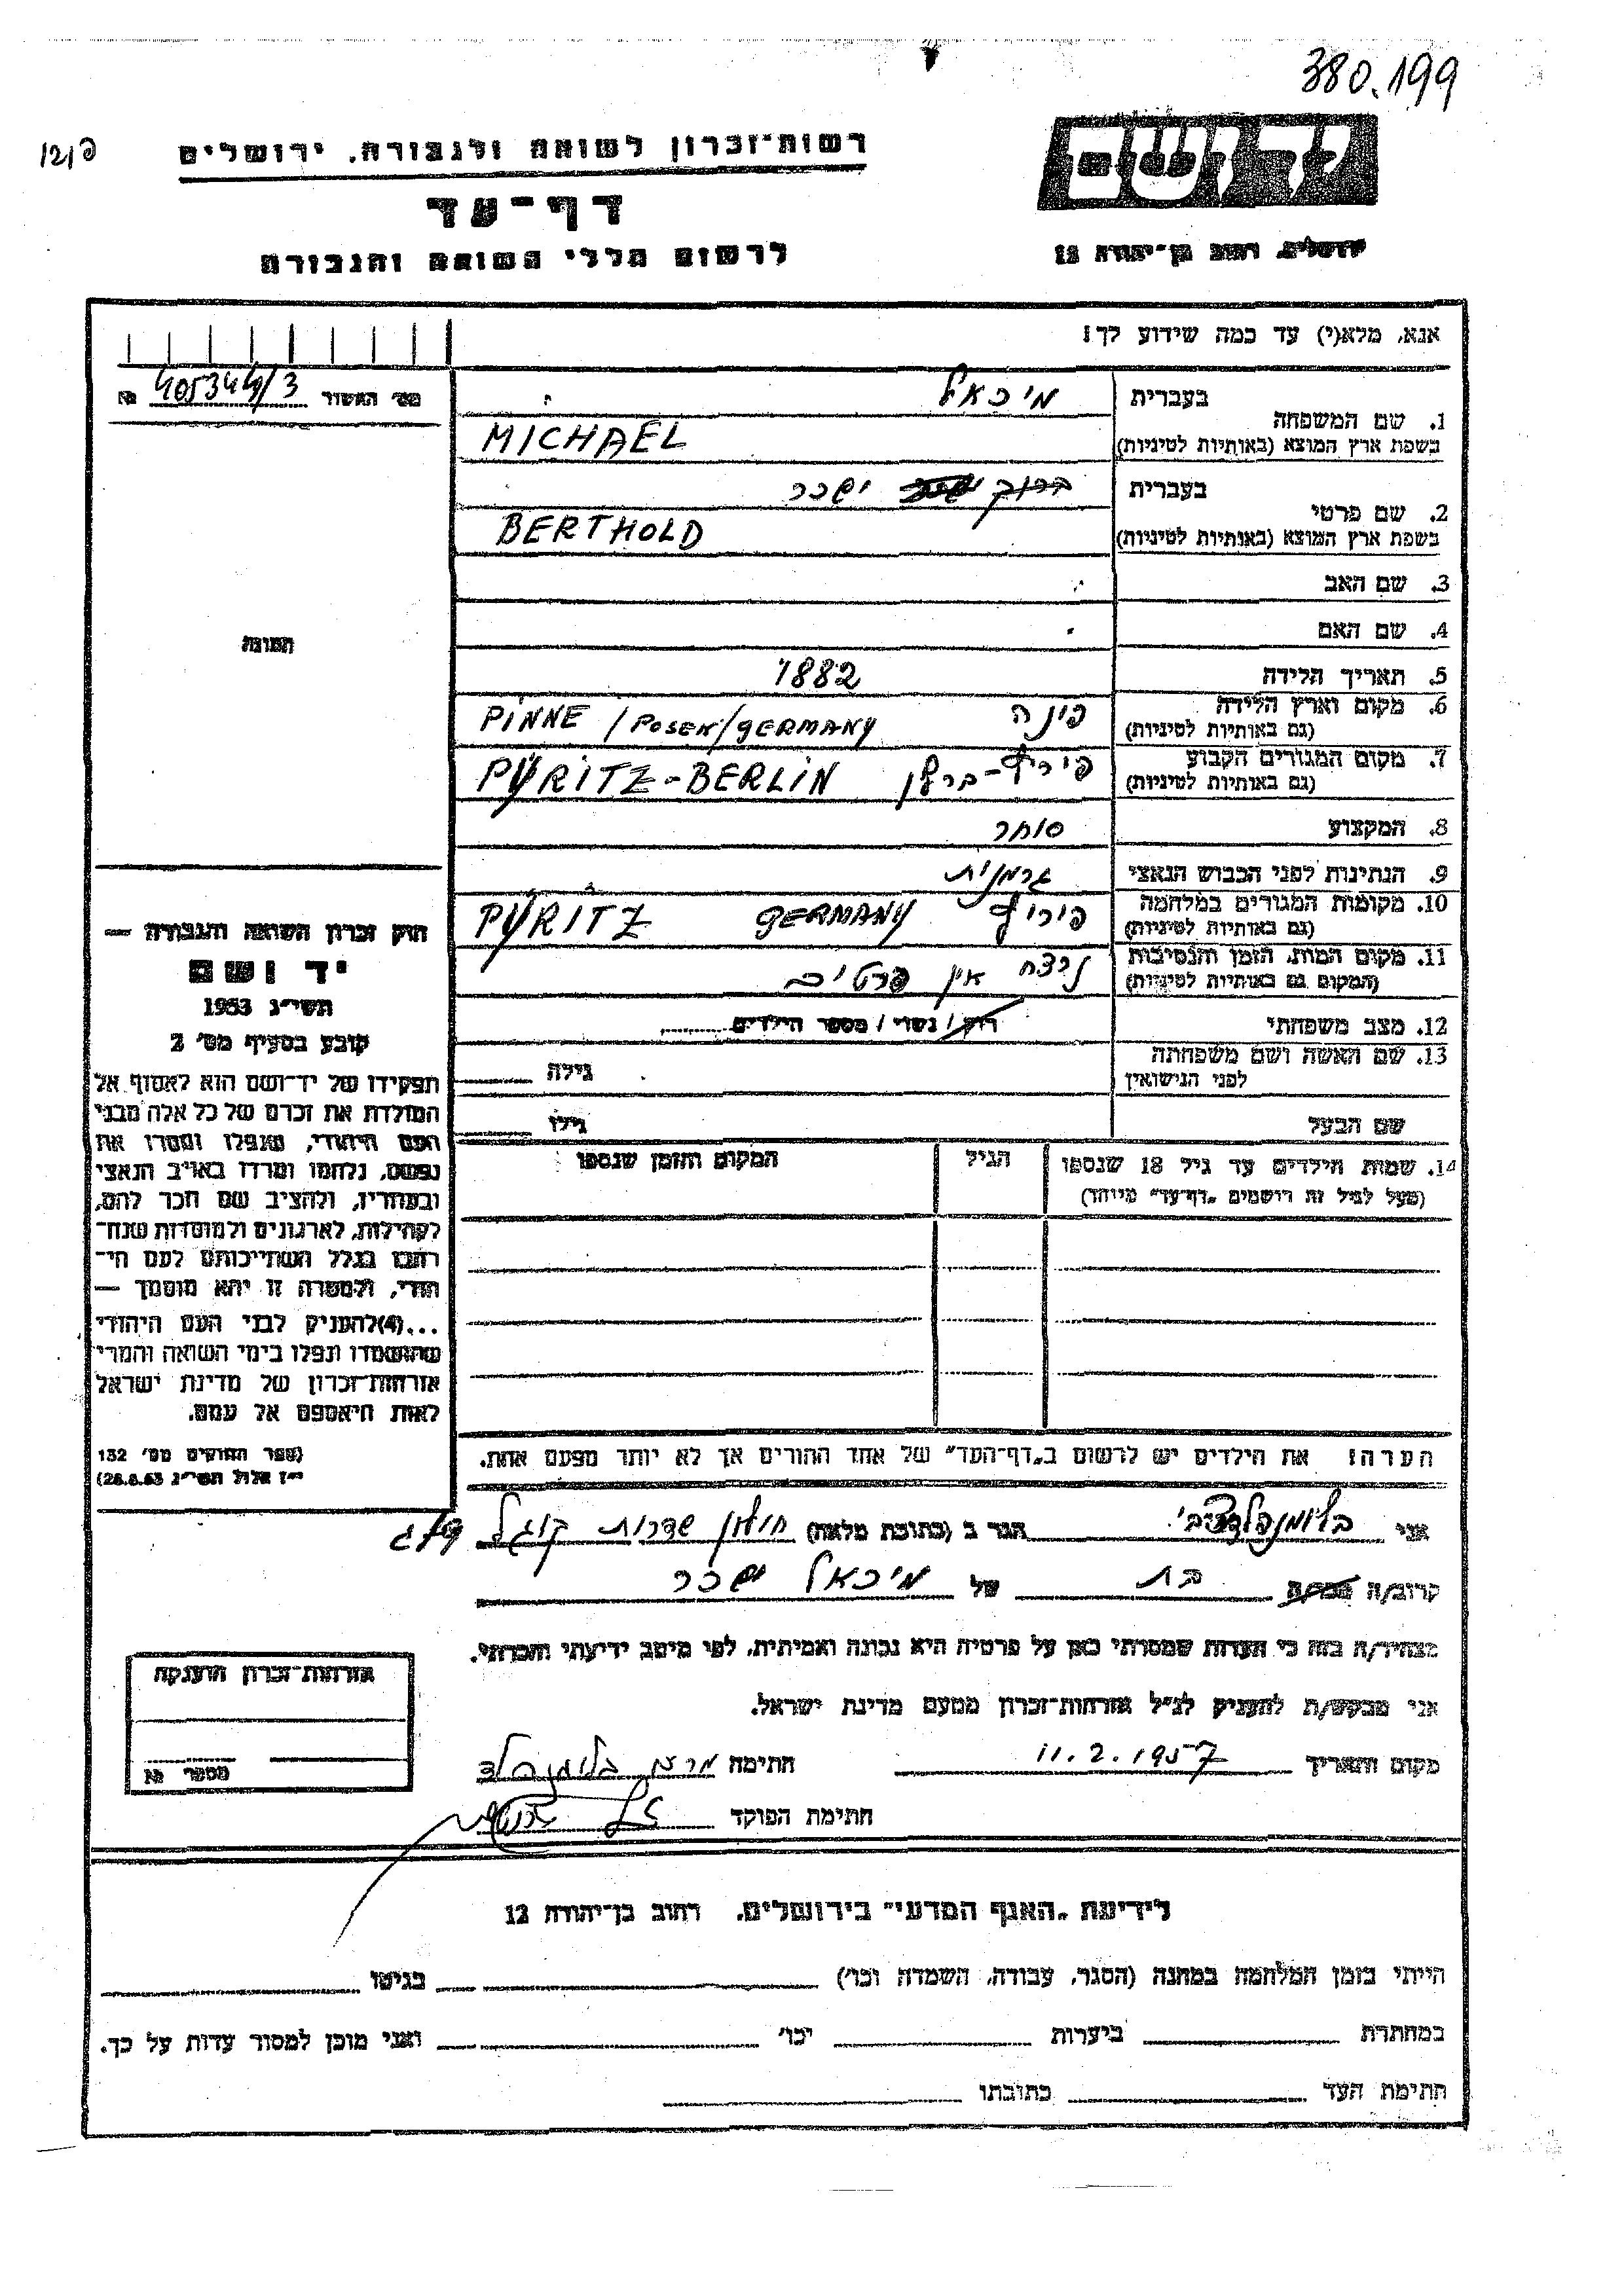 380.199
רשות־זכרון לשואה ולגבורה, ירושלים
יד ושם
דף־עד
לרשום חללי השואה והגבורה
ירושלים, רחוב בן־יהודה 12
אנא, מלא(י) עד כמה שידוע לך!
מס׳ האשור 405344/3 №
1. שם המשפחה
בעברית מיכאל
בשפת ארץ המוצא (באותיות לטיניות) MICHAEL
2. שם פרטי
בעברית ישכר
בשפת ארץ המוצא (באותיות לטיניות) BERTHOLD
3. שם האב
4. שם האם
התמונה
5. תאריך הלידה 1882
6. מקום וארץ הלידה פינה PINNE / POSEN / GERMANY
(גם באותיות לטיניות)
7. מקום המגורים הקבוע פיריץ - ברלין PÜRITZ - BERLIN
(גם באותיות לטיניות)
8. המקצוע סוחר
9. הנתינות לפני הכבוש הנאצי גרמנית
10. מקומות המגורים במלחמה פיריץ GERMANY PÜRITZ
(גם באותיות לטיניות)
11. מקום המות, הזמן והנסיבות נרצח אין פרטים
(המקום גם באותיות לטיניות)
12. מצב משפחתי רוק / נשוי / מספר הילדים
13. שם האשה ושם משפחתה גילה
לפני הנישואין
שם הבעל גילו
14. שמות הילדים עד גיל 18 שנספו הגיל המקום והזמן שנספו
(מעל לגיל זה רושמים „דף־עד״ מיוחד)
חוק זכרון השואה והגבורה —
יד ושם
תשי״ג 1953
קובע בסעיף מס׳ 2
תפקידו של יד־ושם הוא לאסוף אל
המולדת את זכרם של כל אלה מבני
העם היהודי, שנפלו ומסרו את
נפשם, נלחמו ומרדו באויב הנאצי
ובעוזריו, ולהציב שם וזכר להם,
לקהילות, לארגונים ולמוסדות שנח־
רבו בגלל השתייכותם לעם הי־
הודי, ולמטרה זו יהא מוסמך —
...(4) להעניק לבני העם היהודי
שהושמדו ונפלו בימי השואה והמרי
אזרחות־זכרון של מדינת ישראל
לאות היאספם אל עמם.
(ספר החוקים מס׳ 132
י״ז אלול תשי״ג 28.8.53)
הערה! את הילדים יש לרשום ב„דף־העד״ של אחד ההורים אך לא יותר מפעם אחת.
אני הגר ב (כתובת מלאה) חולון שדרות קוגל
קרוב/ה מכר/ה בת של מיכאל ישכר
מצהיר/ה בזה כי העדות שמסרתי כאן על פרטיה היא נכונה ואמיתית, לפי מיטב ידיעתי והכרתי.
אני מבקש/ת להעניק לנ״ל אזרחות־זכרון מטעם מדינת ישראל.
מקום ותאריך 11.2.1957 חתימה בלומנפלד
חתימת הפוקד
אזרחות־זכרון הוענקה
מספר №
לידיעת „האגף המדעי״ בירושלים, רחוב בן־יהודה 12
הייתי בזמן המלחמה במחנה (הסגר, עבודה, השמדה וכו׳) בגיטו
במחתרת ביערות וכו׳ ואני מוכן למסור עדות על כך.
חתימת העד כתובתו